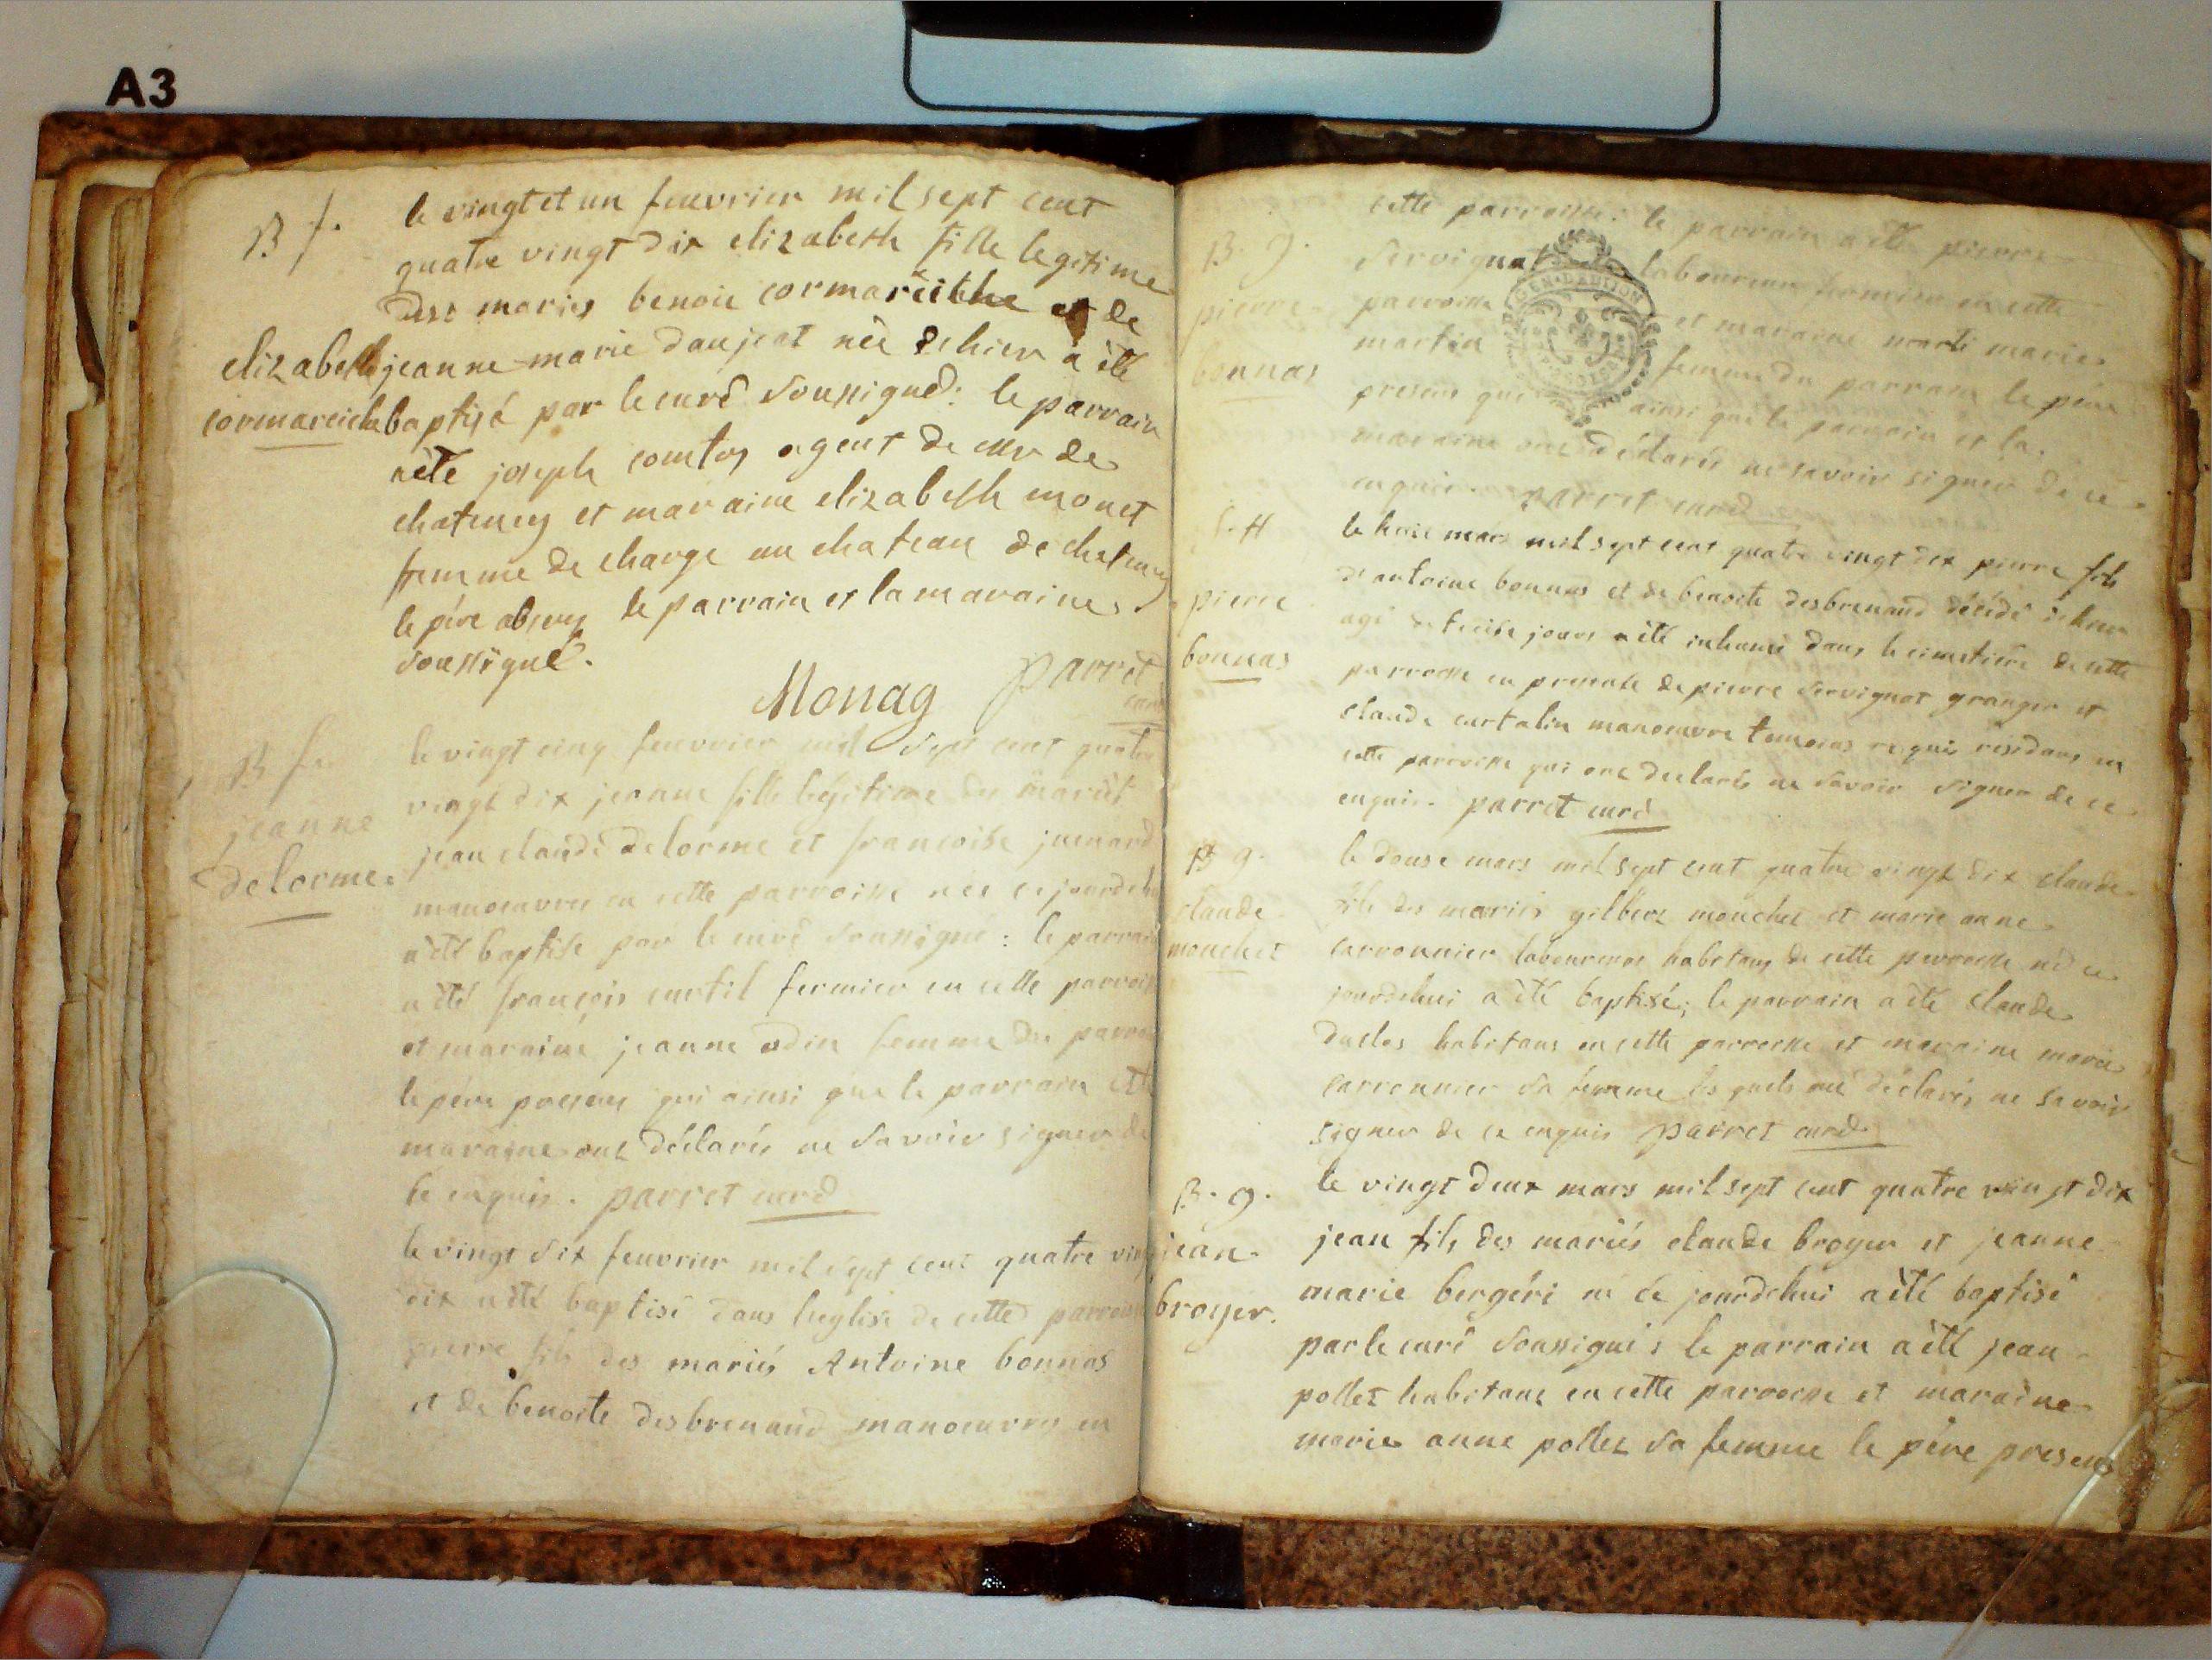 A3
B f.
le vingt et un feuvrier mil sept cent
quatre vingt dix elizabeth fille legitime
des mariés benoit cormareiche et de
elizabeth jeanne marie daujeat née de hier a èté
cormareiche baptisé par le curé soussigné: le parrain
a èté joseph comtoy agent de mr de
chateney et maraine elizabeth monet
femme de charge au chateau de chateney
le pére absent le parrain et la maraine
soussigné.
Monag parret
curé
B f.
jeanne
delorme
le vingt cinq feuvrier mil sept cent quatre
vingt dix jeanne fille légitime des mariés
jean claude delorme et francoise juenard
manoeuvres en cette parroisse née ce jourdehui
a èté baptisé par le curé soussigné: le parrain
a èté francois curtil fermier en cette parroisse
et maraine jeanne odin femme du parrain
le pére present qui ainsi que le parrain et la
maraine ont déclarés ne savoir signer de
ce enquis. parret curé
le vingt six feuvrier mil sept cent quatre vingt
dix a èté baptisé dans l'eglise de cette parroisse
pierre fils des mariés Antoine bonnas
et de benoite desbrenaud manoeuvres en
B. g.
pierre
bonnas
cette parroisse: le parrain a èté pierre
servignat laboureur fermier en cette
parroisse et maraine marie
martin femme du parrain le pére
present qui ainsi que le parrain et la
maraine ont déclarés ne savoir signer de ce
enquis. parret curé
pierre
bonnas
le huit mars mil sept cent quatre vingt dix pierre fils
d'antoine bonnas et de benoite desbrenaud décédé de hier
agé de treise jours a èté inhumé dans le cimetiere de cette
parroisse en presence de pierre servignat granger et
claude curtalin manoeuvre temoins requis residans en
cette parroisse qui ont declarés ne savoir signer de ce
enquis. parret curé
B g.
claude
mouchet
le douse mars mil sept cent quatre vingt dix claude
fils des mariés gilbert mouchet et marie anne
carronnier laboureurs habitans de cette parroisse né ce
jourdehui a èté baptisé; le parrain a èté claude
duclos habitans en cette parroisse et maraine marie
carronnier sa femme les quels ont déclarés ne savoir
signer de ce enquis parret curé
B. g.
jean
broyer.
le vingt deux mars mil sept cent quatre vingt dix
jean fils des mariés claude broyer et jeanne
marie bergéri né ce jourdehui a èté baptisé
par le curé soussigné: le parrain a èté jean
pollet habitant en cette parroisse et maraine
marie anne pollet sa femme le pére present